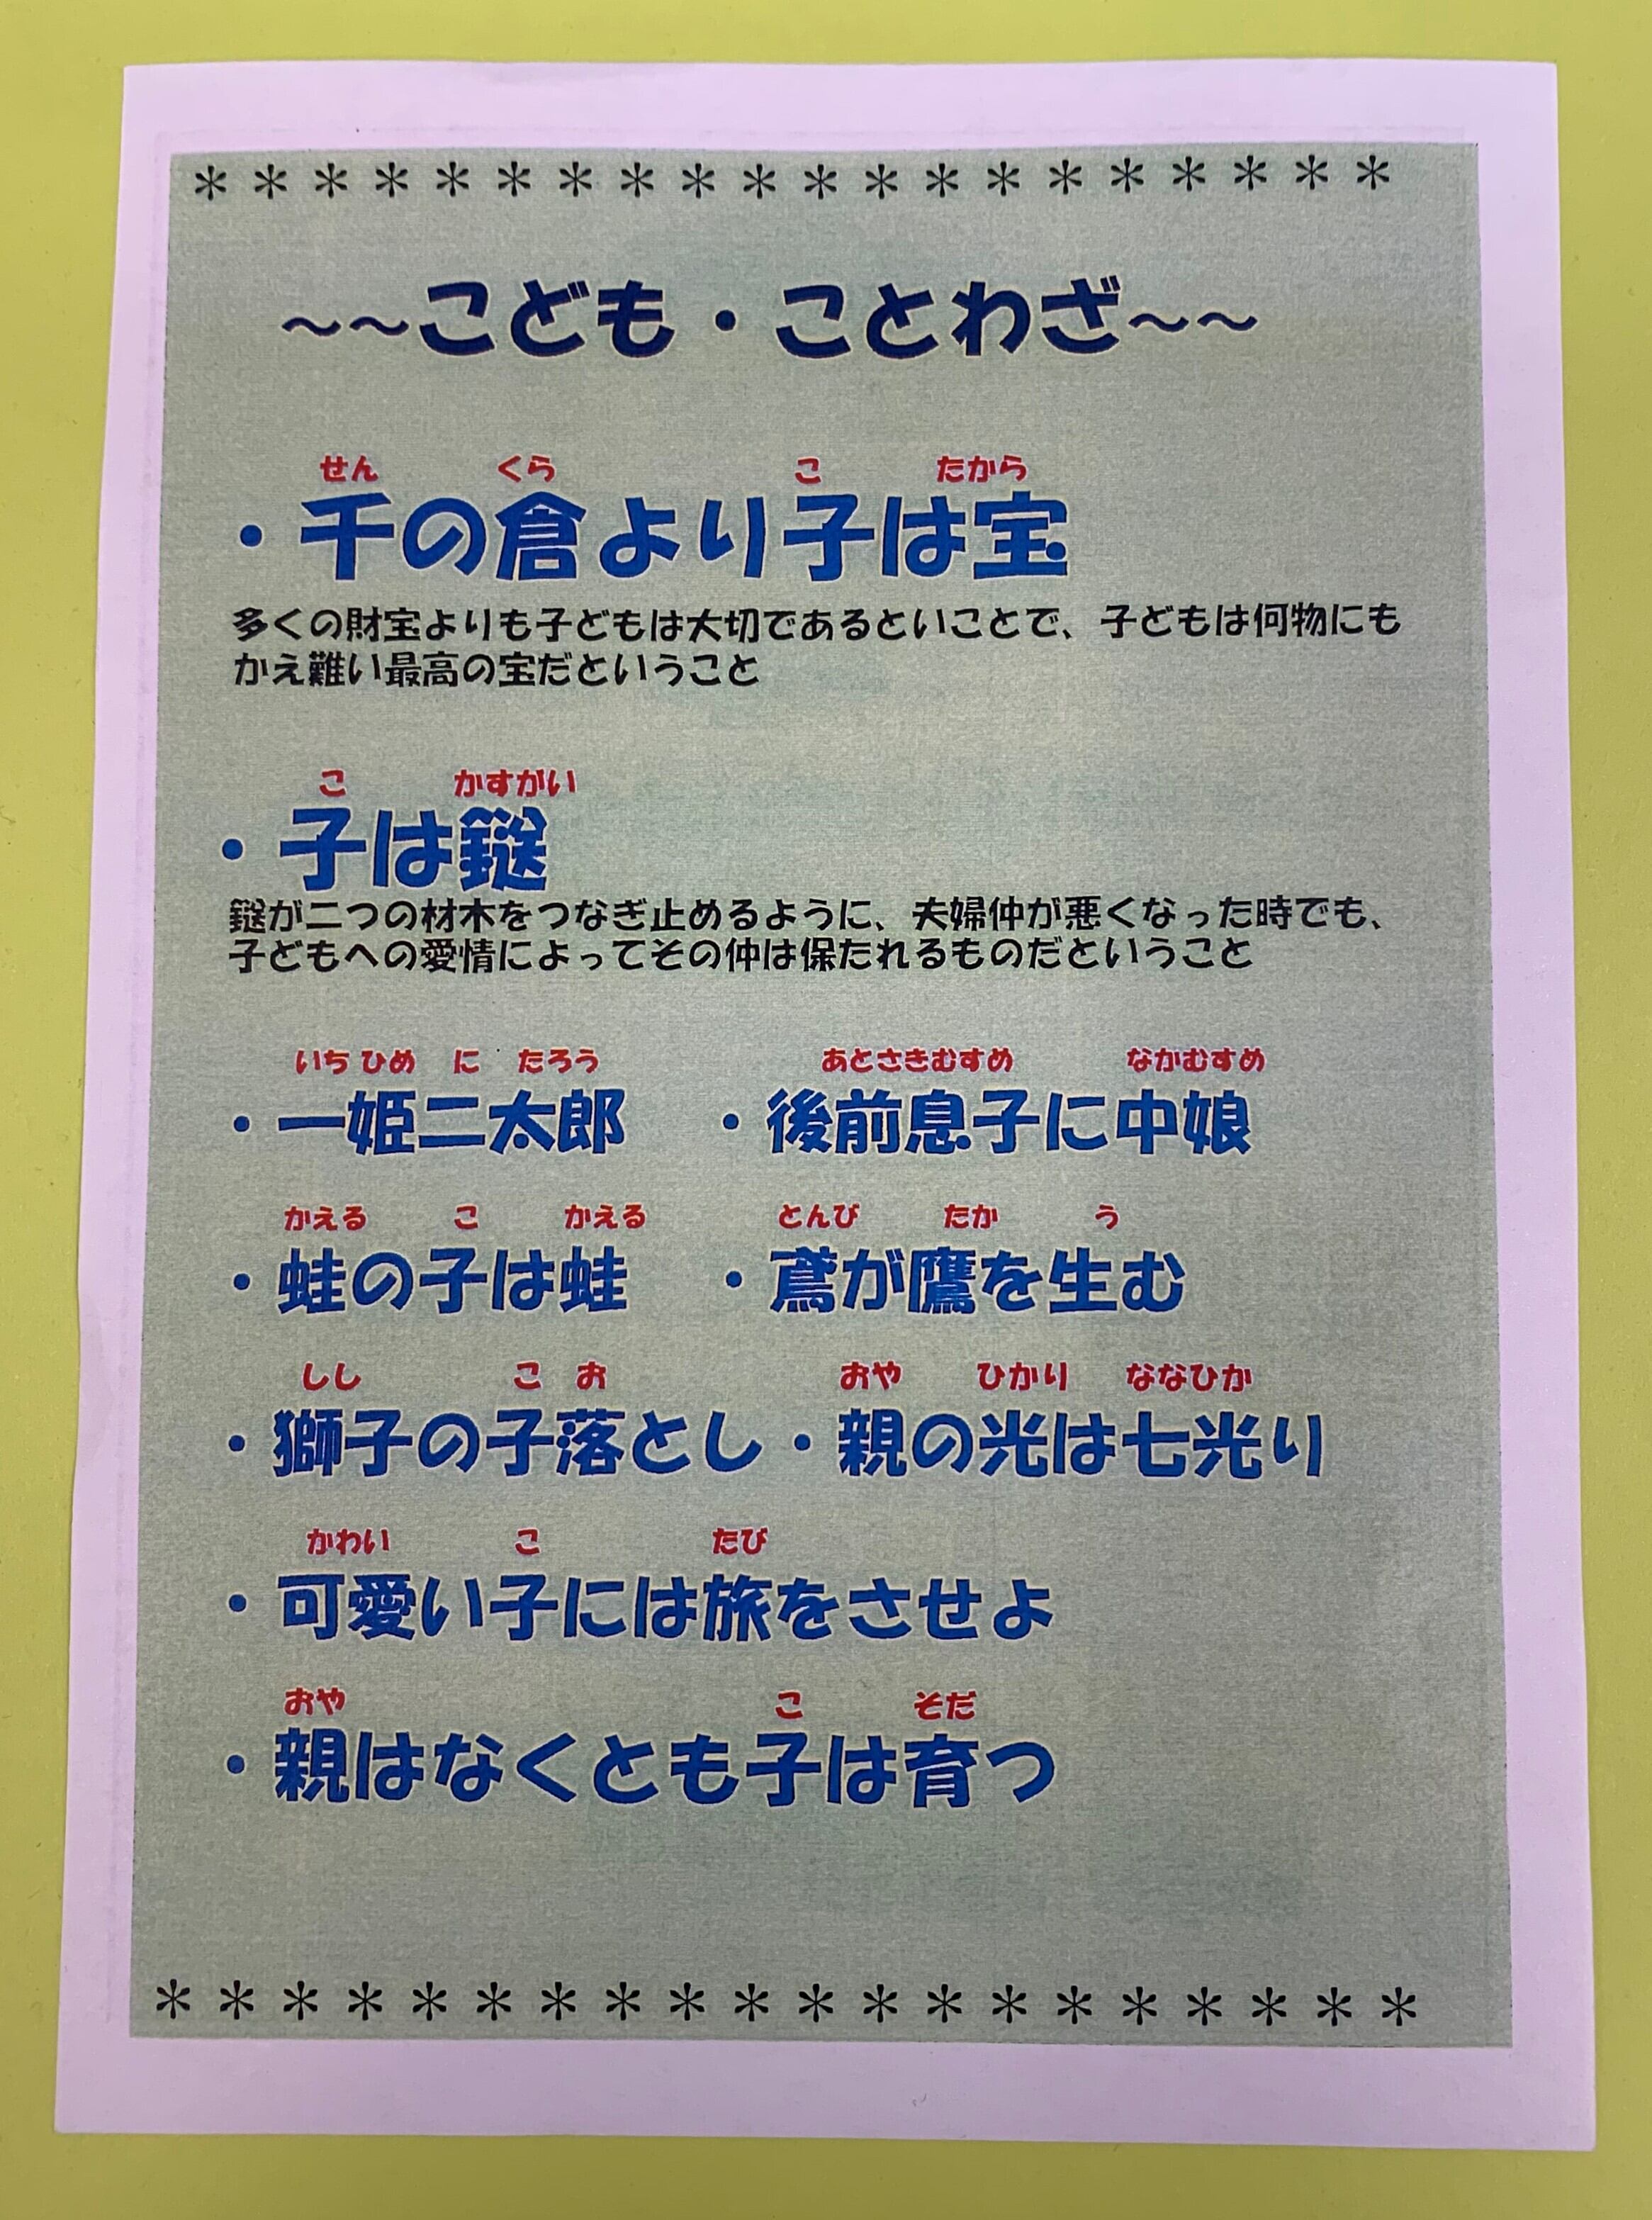 ＊＊＊＊＊＊＊＊＊＊＊＊＊＊＊＊＊＊＊＊
～～こども・ことわざ～～
せん くら こ たから
・千の倉より子は宝
多くの財宝よりも子どもは大切であるといことで、子どもは何物にも
かえ難い最高の宝だということ
こ かすがい
・子は鎹
鎹が二つの材木をつなぎ止めるように、夫婦仲が悪くなった時でも、
子どもへの愛情によってその仲は保たれるものだということ
いち ひめ に たろう あとさきむすめ なかむすめ
・一姫二太郎 ・後前息子に中娘
かえる こ かえる とんび たか う
・蛙の子は蛙 ・鳶が鷹を生む
しし こ お おや ひかり ななひか
・獅子の子落とし・親の光は七光り
かわい こ たび
・可愛い子には旅をさせよ
おや こ そだ
・親はなくとも子は育つ
＊＊＊＊＊＊＊＊＊＊＊＊＊＊＊＊＊＊＊＊